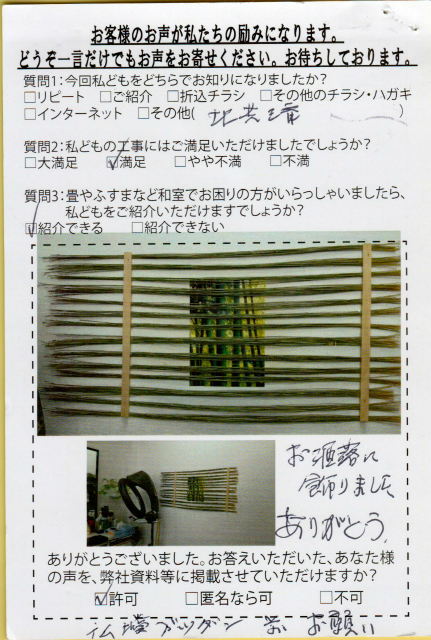 お客様のお声が私たちの励みになります。
どうぞ一言だけでもお声をお寄せください。お待ちしております。
質問1:今回私どもをどちらでお知りになりましたか?
□リピート □ご紹介 □折込チラシ □その他のチラシ・ハガキ
□インターネット □その他( )
質問2:私どもの工事にはご満足いただけましたでしょうか?
□大満足 ☑満足 □やや不満 □不満
質問3:畳やふすまなど和室でお困りの方がいらっしゃいましたら、
私どもをご紹介いただけますでしょうか?
☑紹介できる □紹介できない
お洒落に
飾りました
ありがとう。
ありがとうございました。お答えいただいた、あなた様
の声を、弊社資料等に掲載させていただけますか?
☑許可 □匿名なら可 □不可
お願い